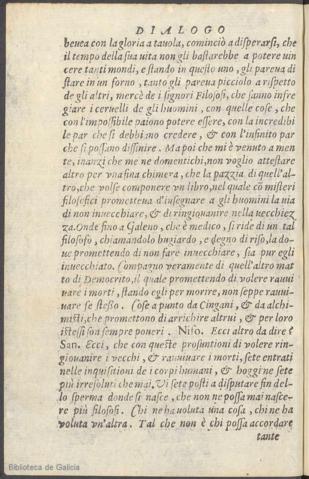 DIALOGO
beuea con la gloria a tauola, cominciò a disperarsi, che
il tempo della sua uita non gli bastarebbe a potere uin
cere tanti mondi, e stando in questo uno, gli pareua di
stare in un forno, tanto gli pareua picciolo a rispetto
de gli altri, mercè de i signori Filosofi, che sanno infre
giare i ceruelli de gli huomini, con quelle cose, che
con l'impossibile paiono potere essere, con la incredibi
le par che si debbiano credere, & con l'infinito par
che si possano diffinire. Ma poi che mi è uenuto a men
te, inanzi che me ne domentichi, non voglio attestare
altro per una fina chimera, che la pazzia di quell'al-
tro, che volse componere un libro, nel quale cō misteri
filosofici prometteua d'insegnare a gli huomini la uia
di non inuecchiare, & di ringiouanire nella uecchiez
za. Onde fino a Galeno, che è medico, si ride di un tal
filosofo, chiamandolo bugiardo, e degno di riso, la do-
ue promettendo di non fare inuecchiare, sia pur egli
inuecchiato. Compagno ueramente di quell'altro mat
to di Democrito, il quale promettendo di volere rauui
uare i morti, stando egli per morire, non seppe rauui-
uare se stesso. Cose a punto da Cingani, & da alchi-
misti, che promettono di arrichire altrui, & per loro
istessi son sempre poueri. Niso. Ecci altro da dire?
San. Ecci, che con queste prosuntioni di volere rin-
giouanire i vecchi, & rauuiuare i morti, sete entrati
nelle inquisitioni de i corpi humani, & hoggi ne sete
più irresoluti che mai. Vi sete posti a disputare fin del-
lo sperma donde si nasce, che non ne possa mai nasce-
re più filosofi. Chi ne ha uoluta una cosa, chi ne ha
voluta un'altra. Tal che non è chi possa accordare
tante
Biblioteca de Galicia